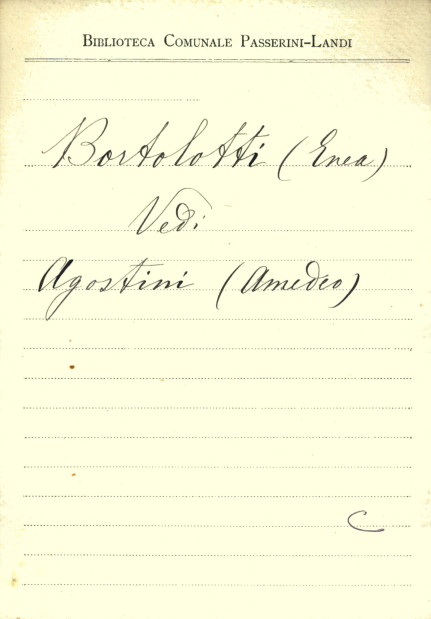 Biblioteca Comunale Passerini-Landi
Bortolotti (Enea)
Vedi
Agostini (Amedeo)
C